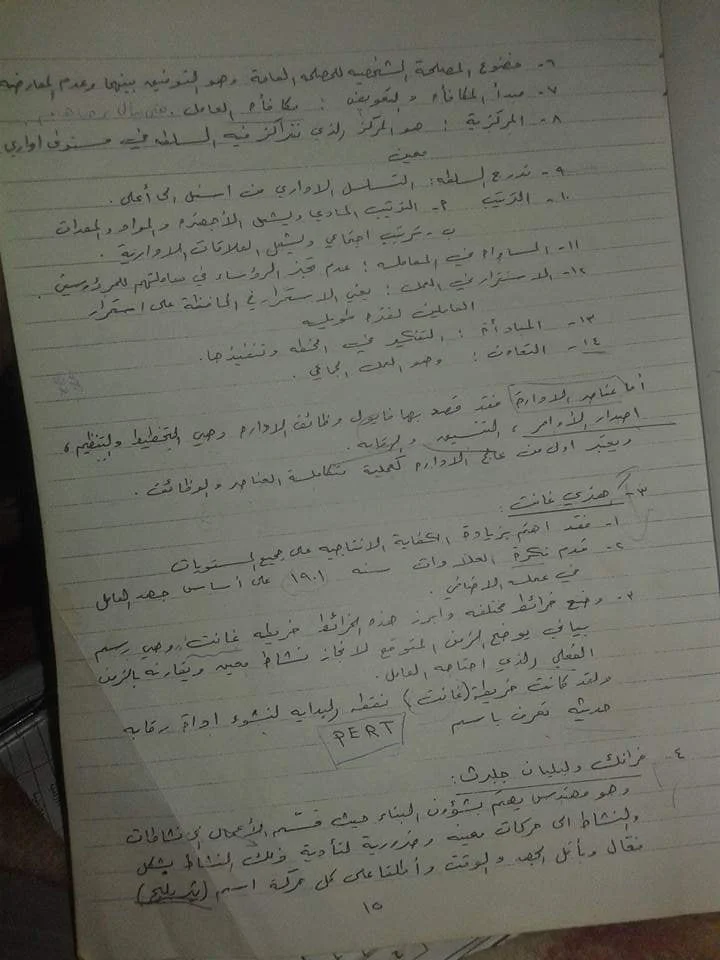 ٦- خضوع المصلحة الشخصيه للمصلحه العامة وهو التوفيق بينهما وعدم المعارضه
٧- مبدأ المكافأه والتعويض : مكافأة العامل
٨- المركزية : هو المركز الذي تتركز فيه السلطه في مستوى اداري
معين
٩- تدرج السلطه : التسلسل الاداري من اسفل الى أعلى .
١٠- الترتيب أ- الترتيب المادي ويشمل الأجهزه والمواد والمعدات
ب- ترتيب اجتماعي ويشمل العلاقات الادارية .
١١- المساواه في المعامله : عدم تحيز الرؤساء في معاملتهم للمرؤوسين .
١٢- الاستقرار في العمل : يعني الاستمرار في المحافظة على استقرار
العاملين لفتره طويله
١٣- المبادأة : التفكير في الخطه وتنفيذها .
١٤- التعاون : وهو العمل الجماعي .
أما عناصر الادارة فقد قصد بها فايول وظائف الاداره وهي التخطيط والتنظيم ،
اصدار الأوامر ، التنسيق والرقابه .
ويعتبر اول من عالج الاداره كعملية متكاملة العناصر والوظائف .
٣- هنري غانت :
١- فقد اهتم بزيادة الكفاية الانتاجيه على جميع المستويات
٢- قدم فكرة العلاوات سنه ١٩٠١ على أساس جهد العامل
في عمله الاضافي .
٣- وضع خرائط مختلفه وابرز هذه الخرائط خريطه غانت وهي رسم
بياني يوضح الزمن المتوقع لانجاز نشاط معين ويقارنه بالزمن
الفعلي الذي احتاجه العامل .
ولقد كانت خريطة (غانت) نقطه البدايه لنشوء اداة رقابه
حديثه تعرف باسم PERT
٤- فرانك وليليان جلبرث :
وهو مهندس يهتم بشؤون البناء حيث قسم الأعمال الى نشاطات
والنشاط الى حركات معينه وضرورية لتأدية ذلك النشاط بشكل
فعال وبأقل الجهد والوقت وأطلقا على كل حركة اسم (ثيربليج)
١٥